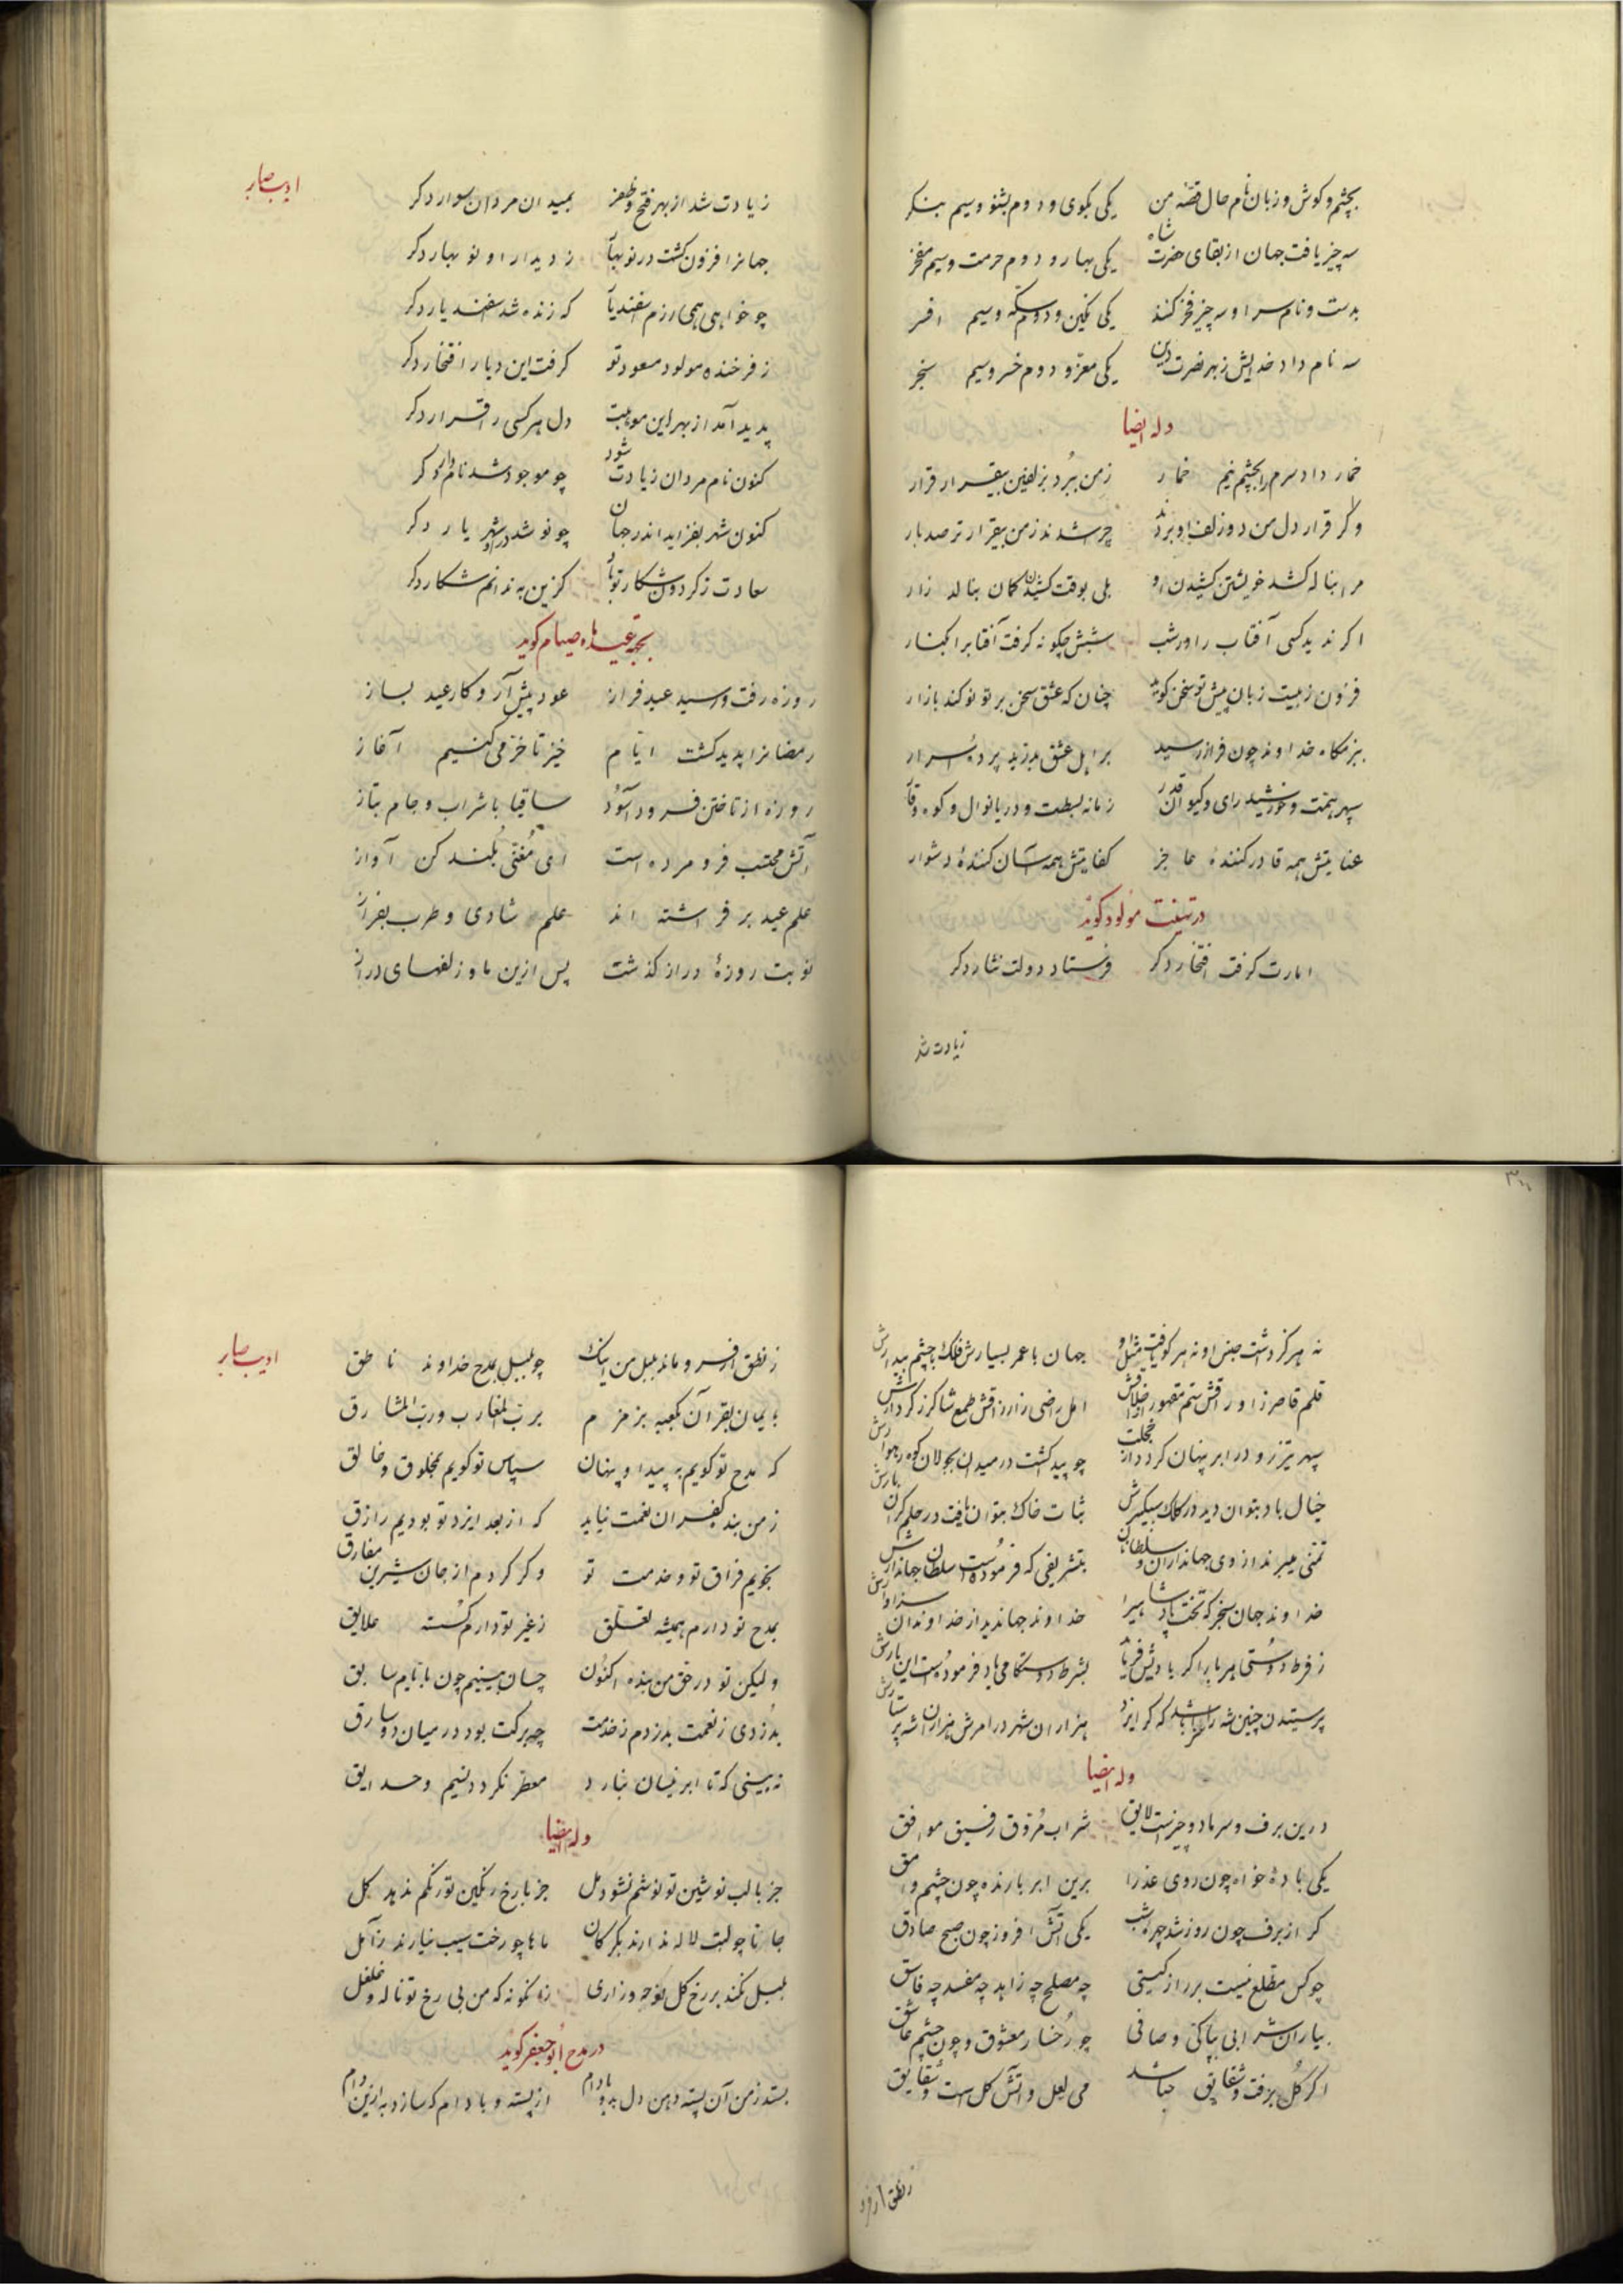 بچشم و کوش و زبان نام حال قصهٔ من یکی بکوی و دوم بشنو و سیم بنکر
سه چیز یافت جهان از بقای حضرت شاه یکی بهار و دوم حرمت و سیم مفخر
بدست و نام سر او سه چیز فخر کنند یکی نکین و دوم سکه و سیم افسر
سه نام داد خدایش ز بهر نصرت دین یکی معز و دوم خسر و سیم سنجر
وله ایضا
خمار داد سرم را بچشم نیم خمار ز من ببُرد بزلفین بیقرار قرار
وکر قرار دل من دو زلف او بردند چرا شدند ز من بیقرارتر صد بار
مرا بناله کشد خویشتن کشیدن او بلی بوقت کشیدن کمان بنالد زار
اکر ندید کسی آفتاب را در شب شبش چکونه کرفت آفتابرا بکنار
فزون ز بیست زبان پیش تو سخن کویند چنان که عشق سخن بر تو نو کند بازار
ببزمکاه خداوند چون فراز رسید بر اهل عشق بدرّید پردهٔ اسرار
سپهر همت و خورشید رای و کیوان قدر زمانه بسطت و دریا نوال و کوه وقار
عنایتش همه قادر کنندهٔ عاجز کفایتش همه آسان کنندهٔ دشوار
در تهنیت مولود کوید
امارت کرفت افتخار دکر فرستاد دولت نثار دکر
زیادت شد
ادیب صابر
زیادت شد از بهر فتح و ظفر بمیدان مردان سوار دکر
جهانرا فزون کشت در نوبهار ز دیدار او نوبهار دکر
چو خواهی همی رزم اسفندیار که زنده شد اسفندیار دکر
ز فرخنده مولود مسعود تو کرفت این دیار افتخار دکر
پدید آمد از بهر این موهبت دل هر کسی را قرار دکر
کنون نام مردان زیادت شود چو موجود شد نامدار دکر
کنون شهر بفزاید اندر جهان چو نو شد درو شهریار دکر
سعادت ز کردون شکار تو باد کزین به ندانم شکار دکر
بجهة عید ماه صیام کوید
روزه رفت و رسید عید فراز عود پیش آر و کار عید بساز
رمضانرا پدید کشت ایام خیز تا خرمی کنیم آغاز
روزه از تاختن فرود آسُود ساقیا با شراب و جام بتاز
آتش محتسب فرو مرده است ای مُغنّی بُلند کن آواز
علم عید برفراشته اند علم شادی و طرب بفراز
نوبت روزهٔ دراز کذشت پس ازین ما و زلفهای دراز
نه هرکز داشت جنس او نه هرکو یافت مثل او جهان با عمر بسیارش فلک با چشم بیدارش
سپهر تیزرو در ابر پنهان کردد از خجلت چو پیدا کشت در میدان بجولان کوه رهوارش
خیال باد بتوان دید در کلک سبکسرش ثبات خاک بتوان یافت در حلم کران بارش
تمنی میبرند از وی جهانداران و سلطانان بتشریفی که فرمودُست سلطان جهاندارش
خداوند جهان سنجر که تخت پادشاهیرا خداوند جهاندید از خداوندان سزاوارش
وله ایضا
درین برف و سرما دو چیزست لایق شراب مُروّق رفیق موافق
یکی بادهٔ خواه چون روی عذرا برین ابر بارنده چون چشم وامق
کر از برف چون روز شد چهرهٔ شب یکی آتش افروز چون صبح صادق
چو کس مطلع نیست بر راز کیتی چه مصلح چه زاهد چه مفسد چه فاسق
بیار آن شرابی بپاکی و صافی چو رُخسار معشوق و چون چشم عاشق
اکر کُل برفت و شقایق نباشد می لعل و آتش کل است و شقایق
ز نطق ار فرو
ادیب صابر
ز نطق ار فرو ماند بلبل من اینک چو بلبل بمدح خداوند ناطق
بایمان بقرآن بکعبه بزمزم برب المغارب و رب المشارق
که مدح تو کویم به پیدا و پنهان سپاس تو کویم بمخلوق و خالق
ز من بنده کفران نعمت نیاید که از بعد ایزد تو بودیم رازق
نجویم فراق تو و خدمت تو وکر کردم از جان شیرین مفارق
بمدح تو دارم همیشه تعلق ز غیر تو دارم کسسته علایق
ولیکن تو در حق من بنده اکنُون چسان بینیم چون بایام سابق
بدُزدی ز نعمت بدزدم ز خدمت چه برکت بود در میان دو سارق
نه بینی که تا ابر نیسان نبارد معطر نکردد نسیم و حدایق
وله ایضا
جز با لب نوشین تو نوشم نشود مل جز با رخ رنکین تو رنکم ندهد کل
بلبل نکند بر رخ کل نوحه و زاری زانکونه که من بی رخ تو ناله و غلغل
در مدح ابوجعفر کوید
بستد ز من آن پسته دهن دل بدو بادام از پسته و بادام که سازد به ازین دام